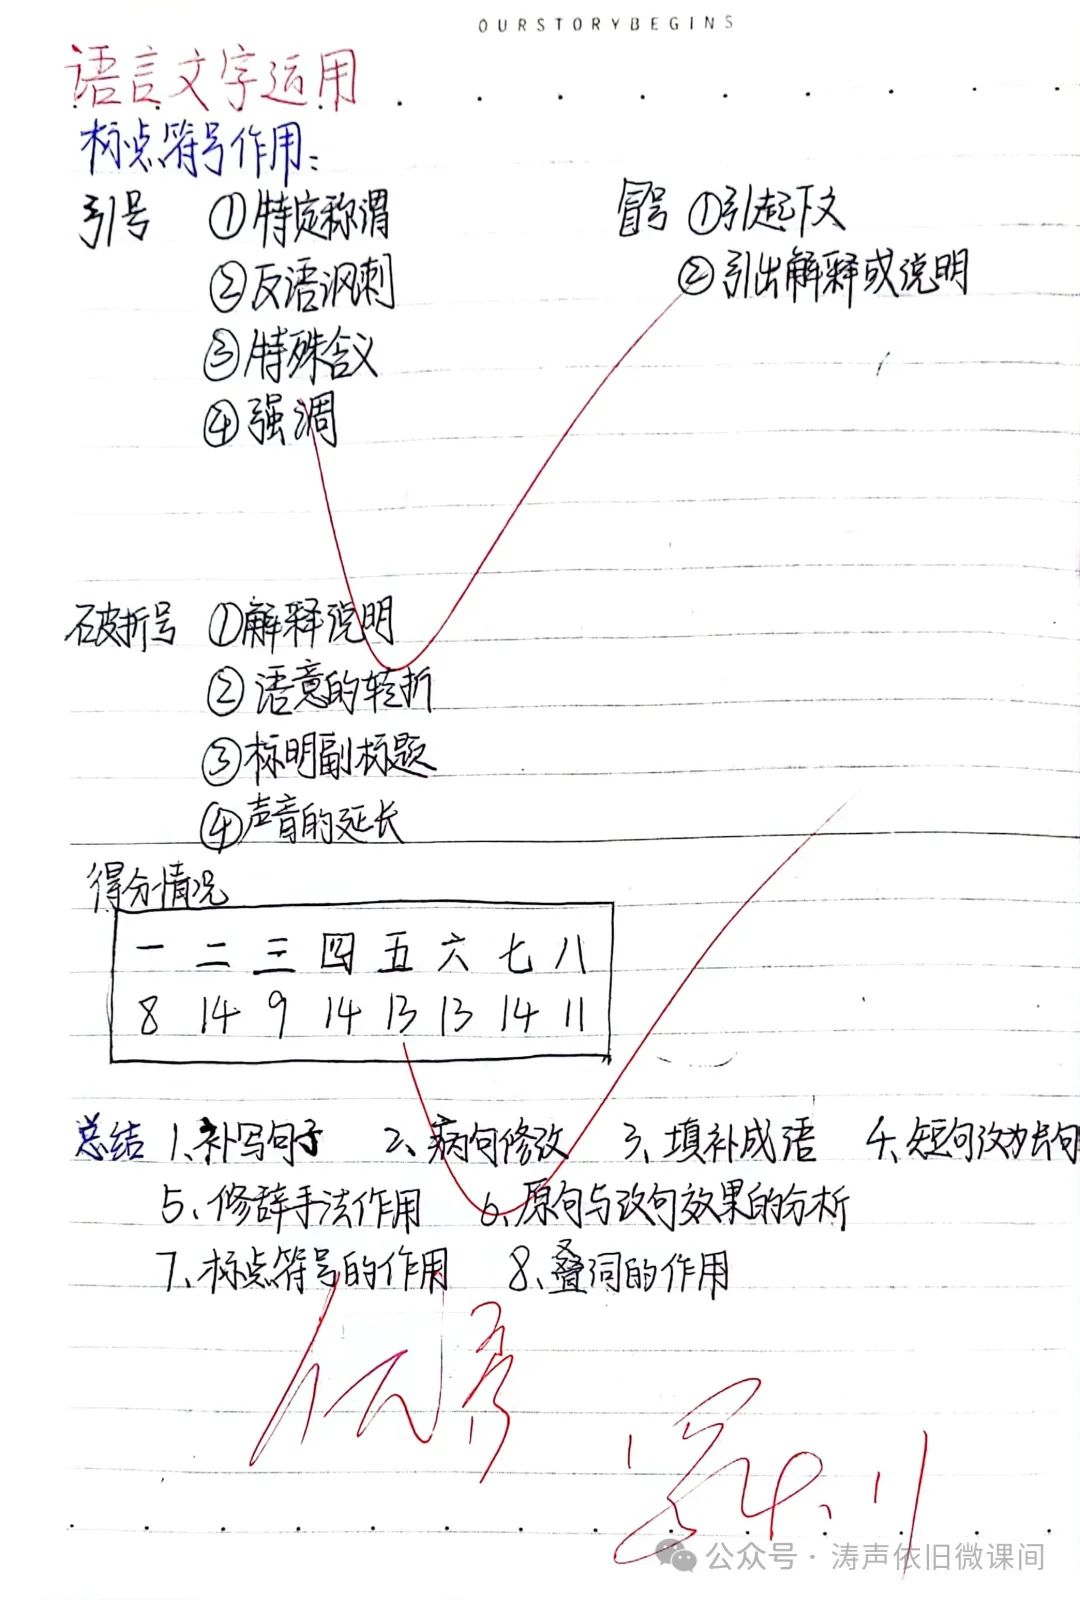 OURSTORYBEGINS
语言文字运用
标点符号作用:
引号 ①特定称谓 冒号 ①引起下文
②反语讽刺 ②引出解释或说明
③特殊含义
④强调
破折号 ①解释说明
②语意的转折
③标明副标题
④声音的延长
得分情况
一 二 三 四 五 六 七 八
8 14 9 14 13 13 14 11
总结 1、补写句子 2、病句修改 3、填补成语 4、短句改为长句
5、修辞手法作用 6、原句与改句效果的分析
7、标点符号的作用 8、叠词的作用
优秀
公众号·涛声依旧微课间